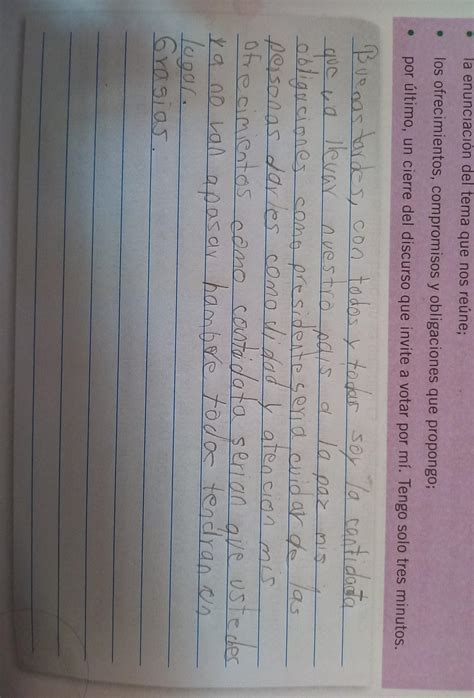 la enunciación del tema que nos reúne;
• los ofrecimientos, compromisos y obligaciones que propongo;
• por último, un cierre del discurso que invite a votar por mí. Tengo solo tres minutos.
Buenas tardes, con todos y todas soy la cantidata
que va llevar nuestro país a la paz mis
obligaciones como presidente seria cuidar de las
personas darles comodidad y atencion mis
ofrecimientos como cantidata serian que ustedes
ya no van apasar hambre todos tendran un
lugar.
Grasias.